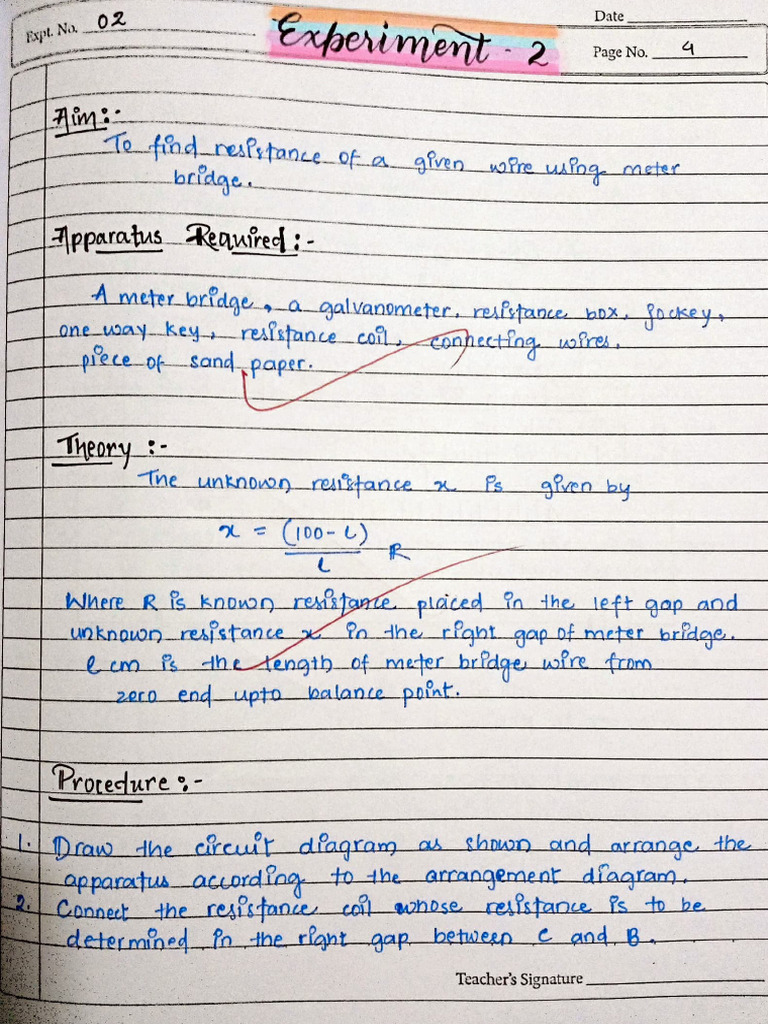 Expt. No. 02
Experiment - 2
Date
Page No. 4
Aim:-
To find resistance of a given wire using meter
bridge.
Apparatus Required:-
A meter bridge, a galvanometer, resistance box, jockey,
one way key, resistance coil, connecting wires,
piece of sand paper.
Theory :-
The unknown resistance x is given by
x = (100-l)/l R
Where R is known resistance placed in the left gap and
unknown resistance x in the right gap of meter bridge.
l cm is the length of meter bridge wire from
zero end upto balance point.
Procedure:-
1. Draw the circuit diagram as shown and arrange the
apparatus according to the arrangement diagram.
2. Connect the resistance coil whose resistance is to be
determined in the right gap between C and B.
Teacher's Signature